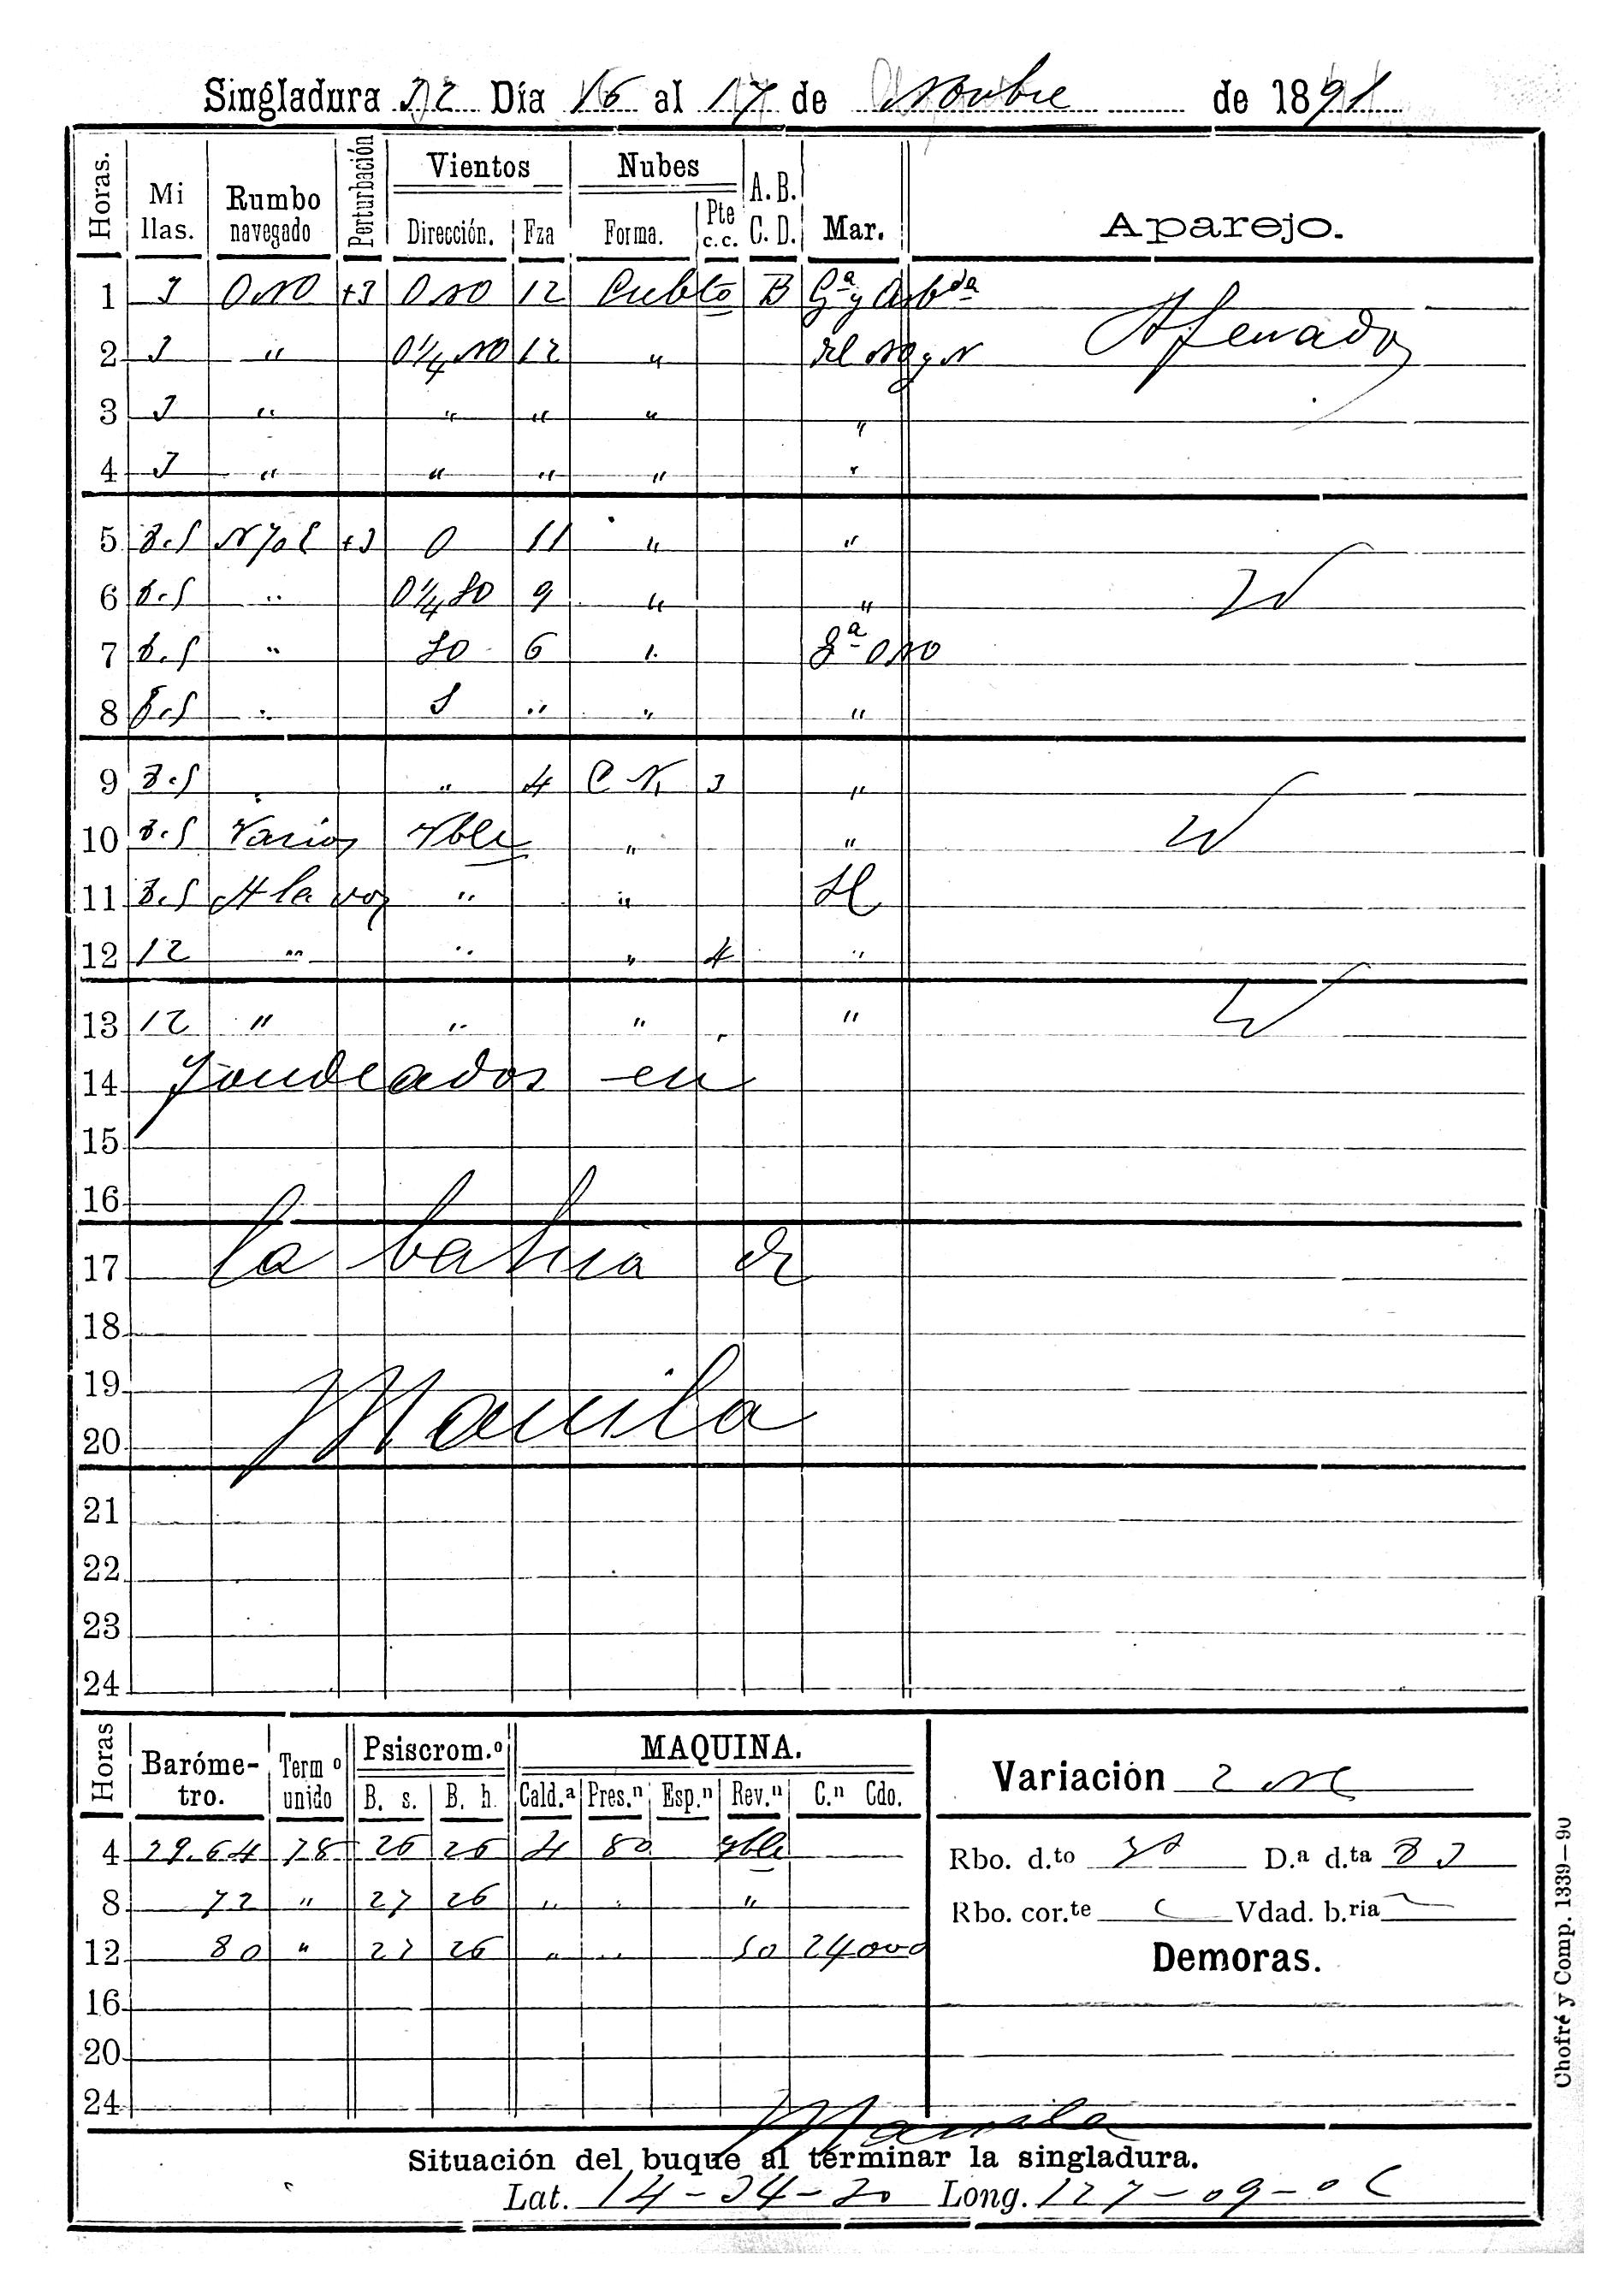 Singladura 32 Día 16 al 17 de Novbre de 1891
Horas. Mi llas. Rumbo navegado Perturbación Vientos Nubes A. B. C. D. Mar. Aparejo.
Dirección. Fza Forma. Pte c.c.
1 3 ONO +3 ONO 12 Cubto B Gª y Arbda Aferrado
2 3 " O¼NO 12 " del NO y N
3 3 " " " " "
4 3 " " " " "
5 8.5 N70E +3 O 11 " "
6 8.5 " O¼SO 9 " "
7 8.5 " SO 6 " Gª ONO
8 8.5 " S " " "
9 8.5 " " 4 C N 3 "
10 8.5 Varios Vble " "
11 8.5 A la voz " "
12 12 " " " 4 "
13 12 " " " " "
14 Fondeados en
15
16
17 la bahia de
18
19
20 Manila
21
22
23
24
Horas Baróme-tro. Termº unido Psiscrom.º MAQUINA. Variación 2 NE
B. s. B. h. Cald.ª Pres.ⁿ Esp.ⁿ Rev.ⁿ C.ⁿ Cdo.
4 29.64 78 26 26 4 80 Vble Rbo. d.to D.ª d.ta 83
8 72 " 27 26 " " " Rbo. cor.te Vdad. b.ria
12 80 " 27 26 " " 50 24000 Demoras.
16
20
24
Manila
Situación del buque al terminar la singladura.
Lat. 14-34-20 Long. 127-09-0 E
Chofré y Comp. 1339-90